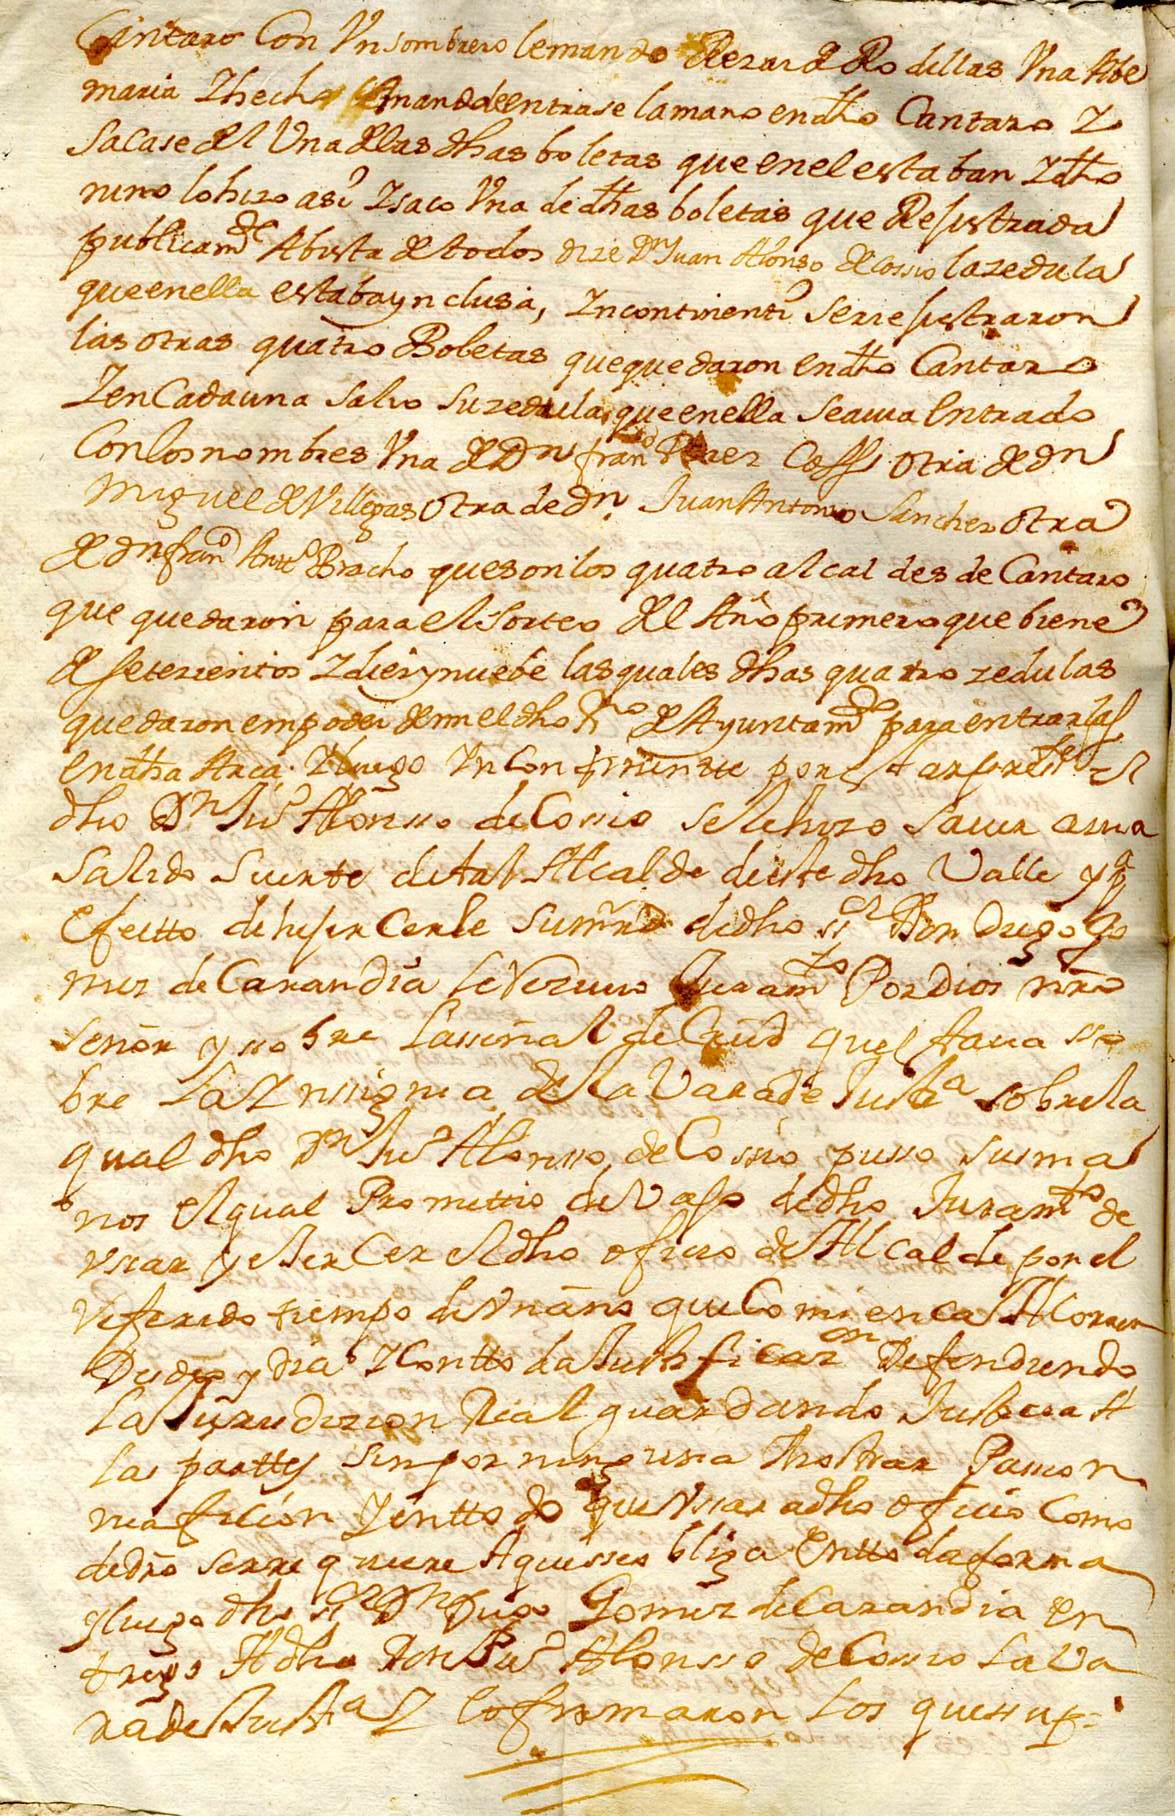 Cantaro Con Vn sombrero le mando Rezar de Rodillas Vna Abe
maria Y hecho le mando de entrase la mano en dho Cantaro Y
Sacase del Vna de las dhas boletas que en el estaban Y dho
nino lo hizo asi Y saco Vna de dhas boletas que Rejistrada
publicamte A bista de todos dize Dn Juan Alonso de Cossio la zedula
que en ella estaba ynclusa, Yncontinenti se rrejistraron
las otras quatro Boletas que quedaron en dho Cantaro
Y en Cada una salio su zedula que en ella se auia entrado
Con los nombres Vna de Dn franco Perez Coss otra de dn
Miguel de Villegas otra de dn Juan Antonio Sanchez otra
de dn franco Anto Bracho que son los quatro alcaldes de Cantaro
que quedaron para el Sorteo del Año primero que biene
de setezientos Y diez y nuebe las quales dhas quatro zedulas
quedaron em poder de mi el dho sno de Ayuntamto para entrarlas
en dha Arca. Y luego Yn Continente por estar presste el
dho Dn Juo Alonsso de Cossio se le hizo sauer auia
salido suerte de tal Alcalde de este dho Valle y pa
efectto de hejercerle su mrd de dho sr Don Diego Go
mez de Carandia le Reziuio Juramto Por Dios nro
señor y sobre La señal de Cruz que estaua so
bre La Ynsignia de la Vara de Justa sobre la
qual dho Dn Juo Alonsso de Cossio pusso su ma
no el qual Prometio de Vajo de dho Juramto de
vsar y ejercer el dho ofizio de Alcalde por el
Referido tiempo de Vn año que Comienca A Correr
Desde oy Dia Y Con tta la Justificazon Defendiendo
La Jurisdizion Real guardando Justicia A
las parttes sin por ninguna Mostrar Passion
ni aficion Y en ttodo que Vssar a dho oficio Como
de dro se rrequiere A que sse obliga En tta da forma
y luego dho sr Dn Diego Gomez de Carandia en
trego A dho Don Juo Alonsso de Cossio La Va
ra de Justa Y lo firmaron los que sup=